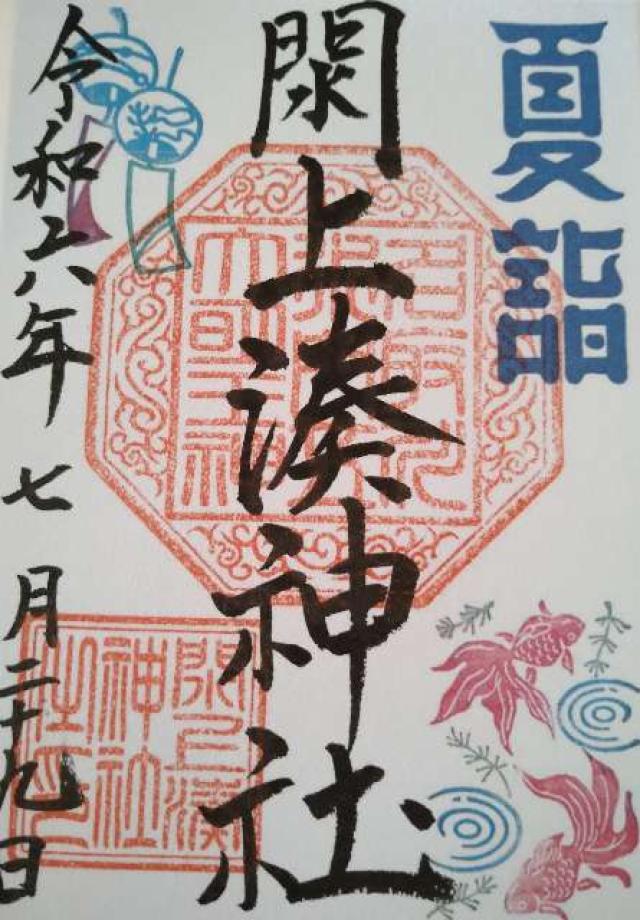 夏詣
閖上湊神社
令和六年七月二十九日
閖上湊
神社
之印